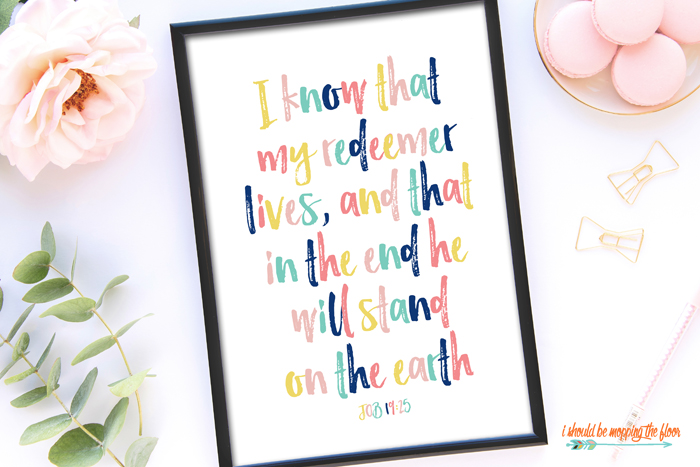 I know that
my redeemer
lives, and that
in the end he
will stand
on the earth
JOB 19:25
i should be mopping the floor